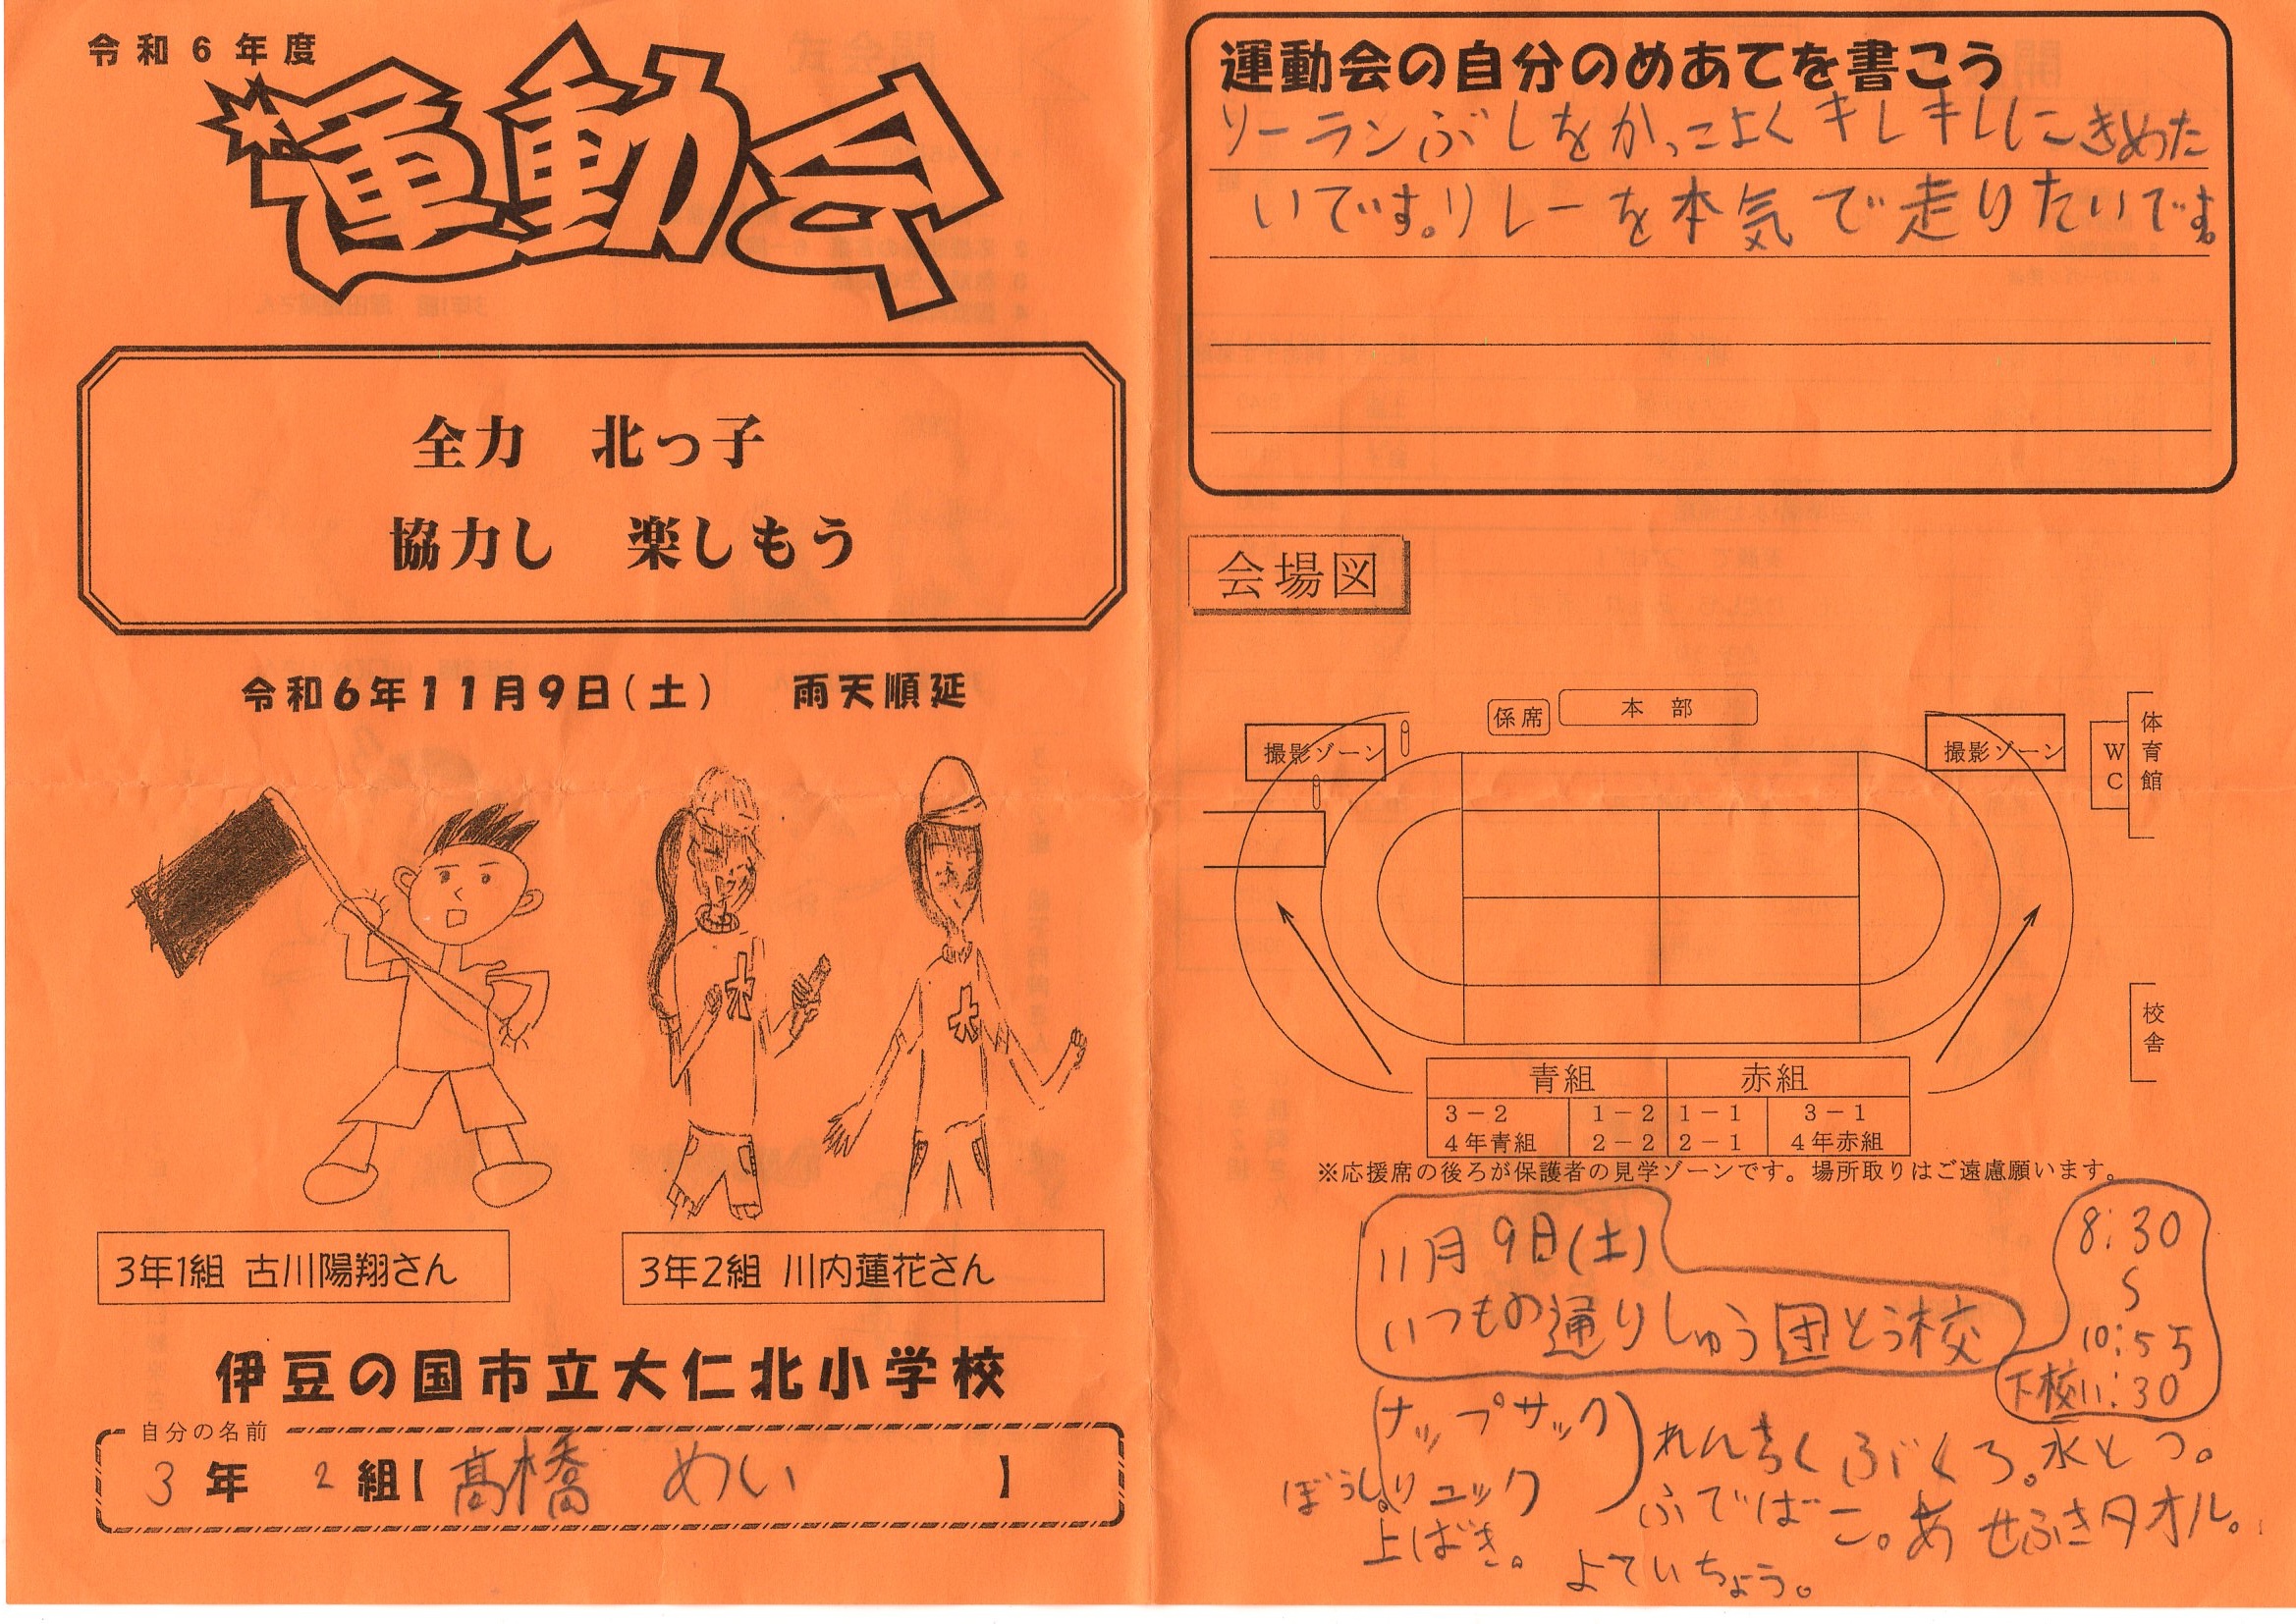 令和6年度
運動会
全力　北っ子
協力し　楽しもう
令和6年11月9日(土)　雨天順延
大
大
3年1組 古川陽翔さん
3年2組 川内蓮花さん
伊豆の国市立大仁北小学校
自分の名前
3年 2組【髙橋 めい 】
運動会の自分のめあてを書こう
ソーランぶしをかっこよくキレキレにきめた
いです。リレーを本気で走りたいです。
会場図
係席
本部
撮影ゾーン
撮影ゾーン
WC
体育館
校舎
青組 赤組
3－2 1－2 1－1 3－1
4年青組 2－2 2－1 4年赤組
※応援席の後ろが保護者の見学ゾーンです。場所取りはご遠慮願います。
11月9日(土)
いつもの通りしゅう団とう校
8:30
10:55
下校11:30
ナップサック
リュック
ぼうし。
上ばき。
れんらくぶくろ。水とう。
ふでばこ。あせふきタオル。
よていちょう。